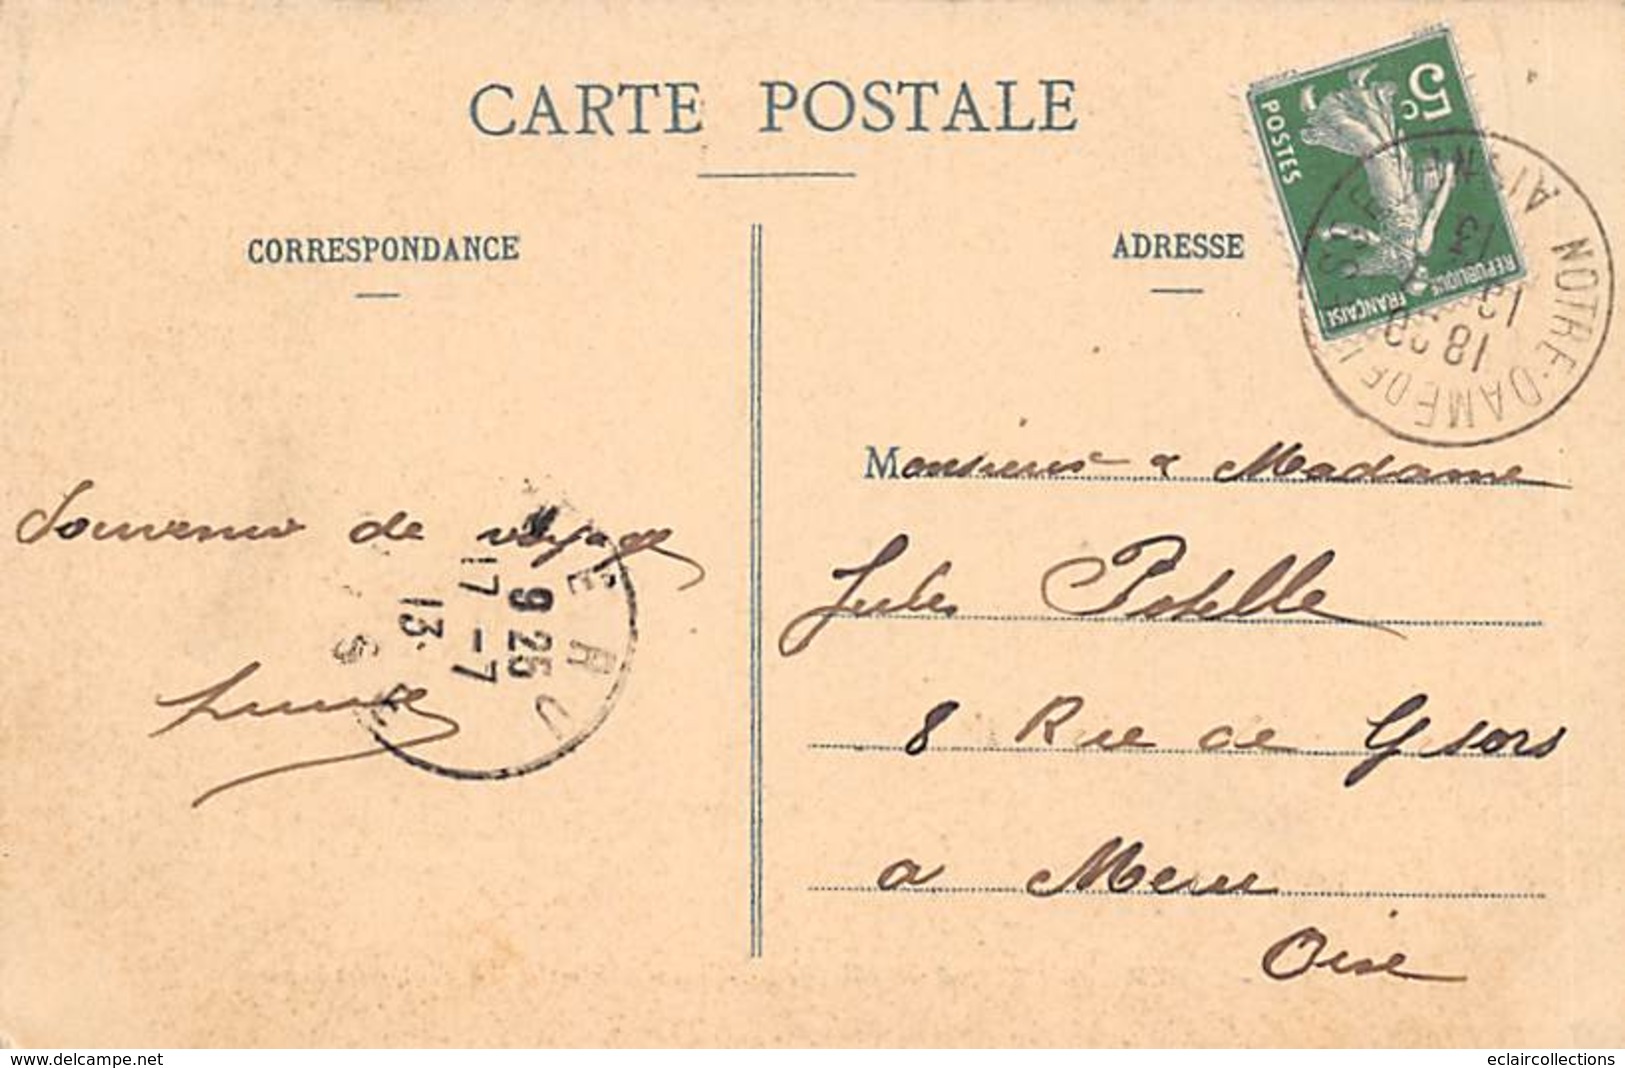 CARTE POSTALE
CORRESPONDANCE
ADRESSE
5c
POSTES
REPUBLIQUE
FRANÇAISE
NOTRE-DAME DE
AISNE
18
13
Monsieur & Madame
Jules Potelle
8 Rue de Gisors
a Meru
Oise
Souvenir de voyage
MÉRU
9 25
17 -7
13
www.delcampe.net
eclaircollections